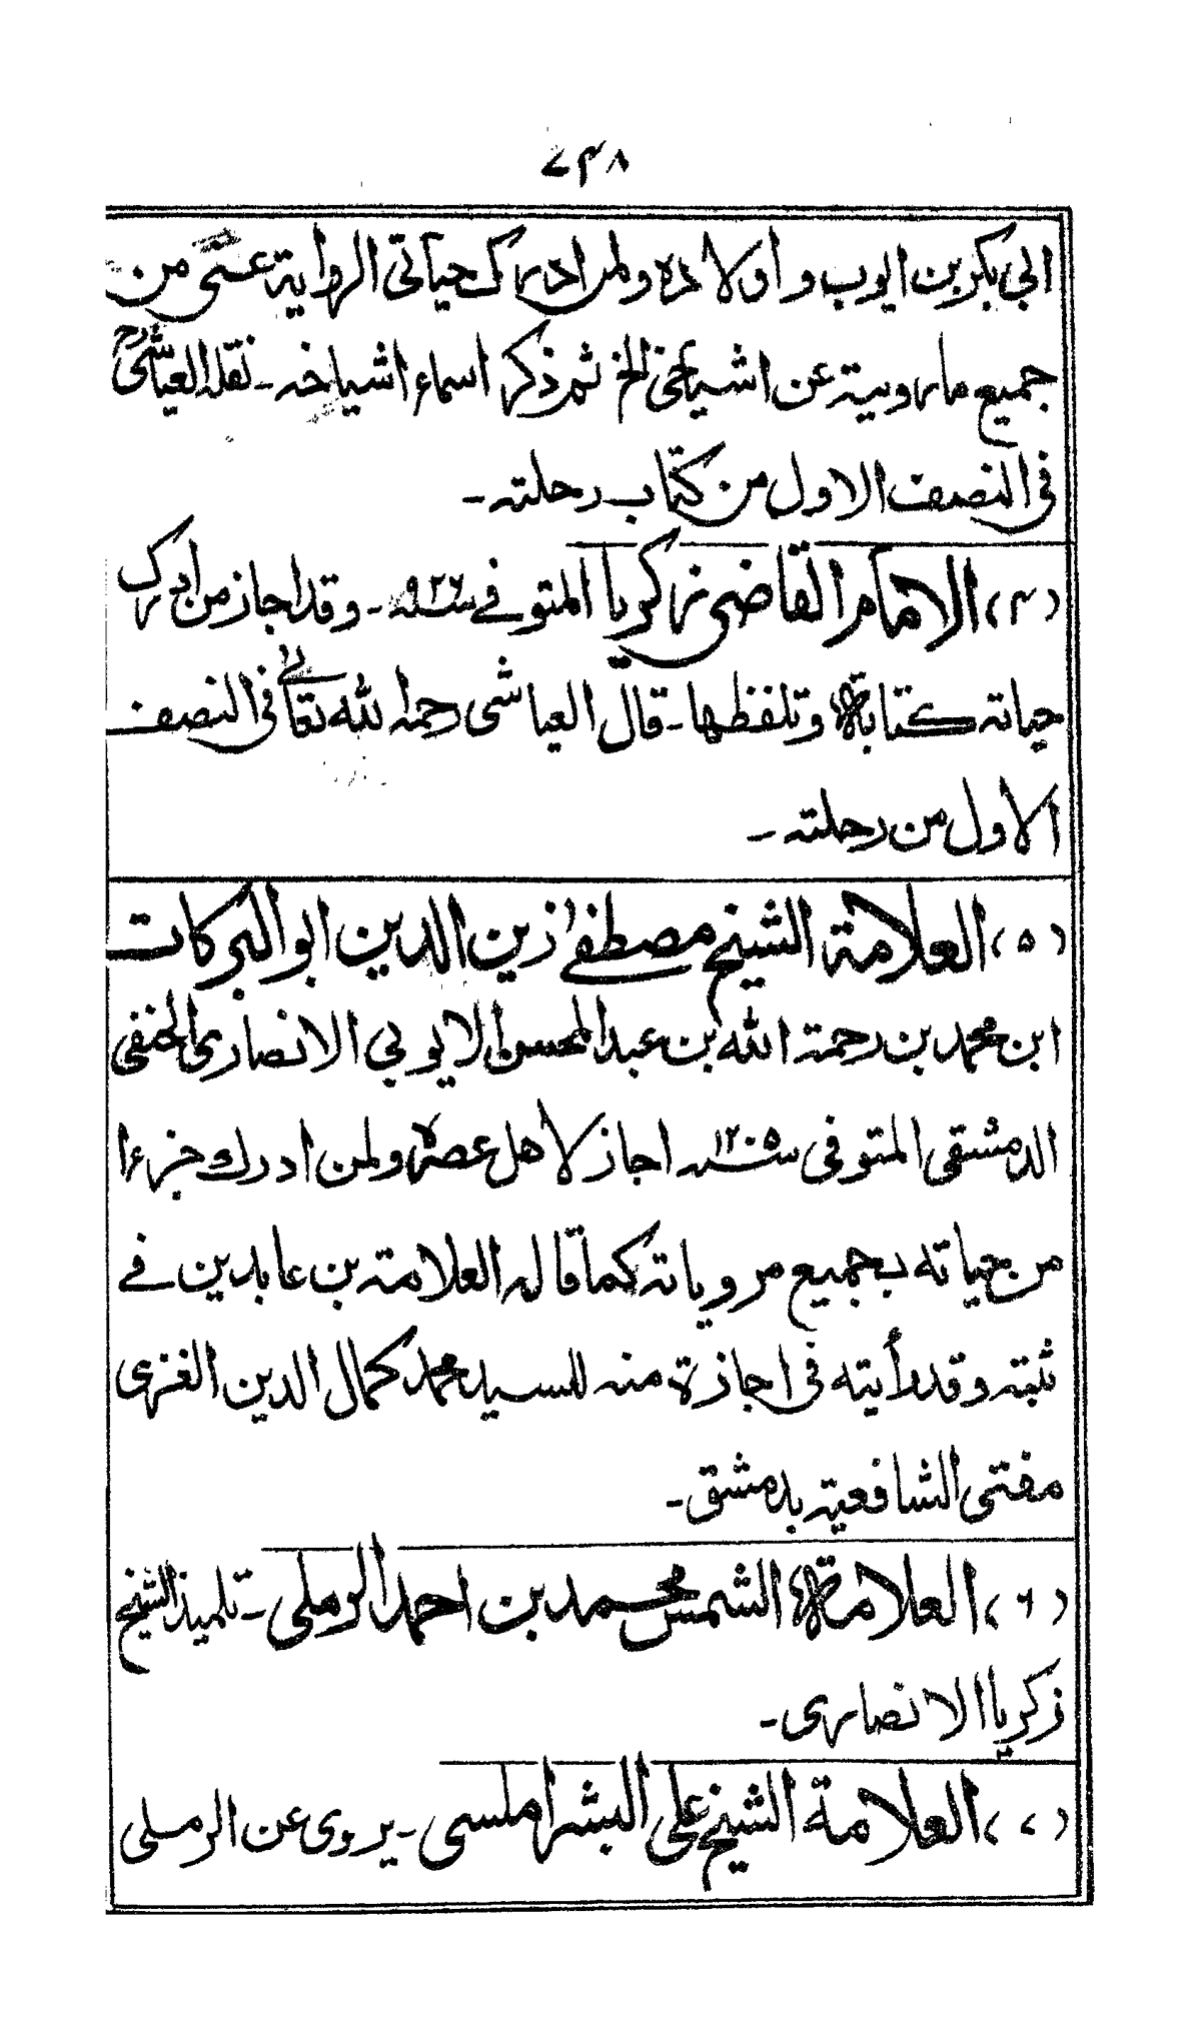 ۷۴۸
ابي بكر بن ايوب و اولاده ولمن ادرك حياتى الرواية عنى من
جميع مارويته عن اشياخى الخ ثم ذكر اسماء اشياخه ـ نقله العياشىؒ
فى النصف الاول من كتاب رحلته ـ
(۴) الامام القاضى زكريا المتوفے سنه ۹۲۶ ـ وقد اجاز من ادرك
حياته كتابة وتلفظها ـ قال العياشى رحمه الله تعالى فى النصف
الاول من رحلته ـ
(۵) العلامة الشيخ مصطفےٰ زين الدين ابو البركات
ابن محمد بن رحمة الله بن عبد المحسن الايوبي الانصارى الحنفى
الدمشقى المتوفى سنه ۱۲۰۵ اجاز لاهل عصره ولمن ادرك جزءا
من حياته بجميع مروياته كما قاله العلامة بن عابدين فے
ثبته وقد رأيته فى اجازة منه للسيد محمد كمال الدين الغزى
مفتى الشافعية بدمشق ـ
(۶) العلامة الشمس محمد بن احمد الرملى ـ تلميذ الشيخ
زكريا الانصارى ـ
(۷) العلامة الشيخ على الشبراملسى ـ يروى عن الرملى